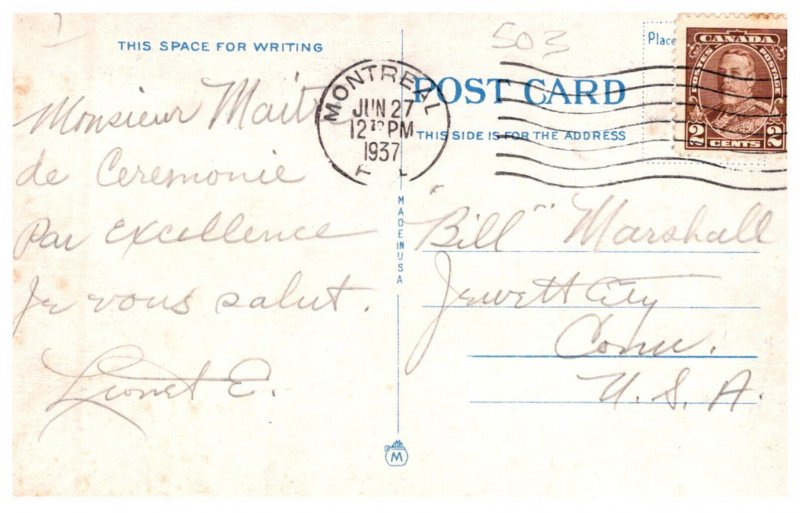 503
THIS SPACE FOR WRITING
Place
CANADA
POSTES POSTAGE
2 CENTS 2
MONTREAL
JUN 27
12 PM
1937
POST CARD
THIS SIDE IS FOR THE ADDRESS
Monsieur Maitre
de Ceremonie
Par excellence
Je vous salut.
Lionel E.
MADE IN USA
"Bill" Marshall
Jewett City
Conn.
U. S. A.
M